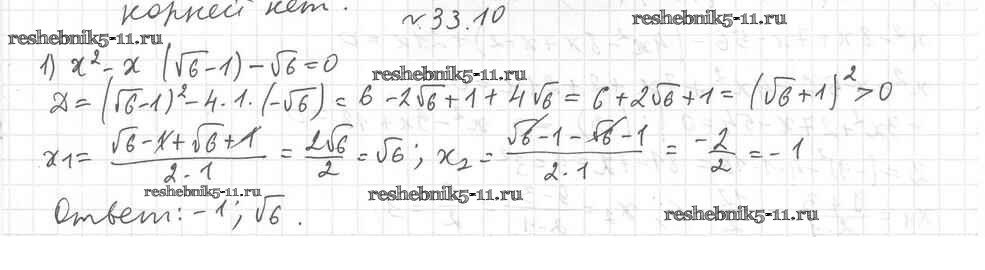 корней нет.
№33.10
reshebnik5-11.ru
reshebnik5-11.ru
1) x² - x (√6-1) - √6 = 0
reshebnik5-11.ru
Д = (√6-1)² - 4·1·(-√6) = 6 - 2√6 + 1 + 4√6 = 6 + 2√6 + 1 = (√6+1)² > 0
x₁ = (√6 - 1 + √6 + 1)/(2·1) = 2√6/2 = √6; x₂ = (√6 - 1 - √6 - 1)/(2·1) = -2/2 = -1
reshebnik5-11.ru
reshebnik5-11.ru
Ответ: -1; √6.
reshebnik5-11.ru